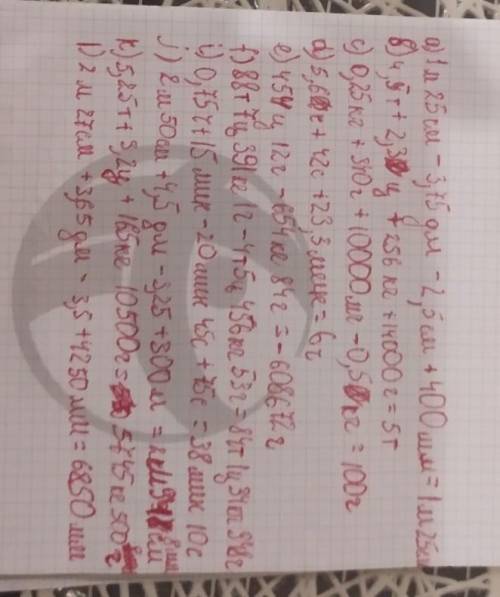 а) 1м 25см - 3,75дм - 2,5см + 400мм = 1м 25см
в) 4,5т + 2,3ц + 256 кг + 14000г = 5т
с) 0,25кг + 540г + 10000мг - 0,5кг = 100г
d) 5,6ч + 42с + 23,3 мин = 6ч
е) 45ц 12г - 654кг 84г = - 608672г
f) 88т 7ц 391кг 1г - 4т 5ц 456кг 53г = 84т 1ц 34кг 948г
i) 0,75ч + 15 мин - 20мин 45с + 75с = 38 мин 10с
j) 2м 50см + 4,5 дм - 3,25 + 300м =
k) 5,25т + 3,2ц + 165кг - 10500г = 5745кг 500г
l) 2м 27см + 36,5дм - 3,5 + 4250 мм = 6850мм